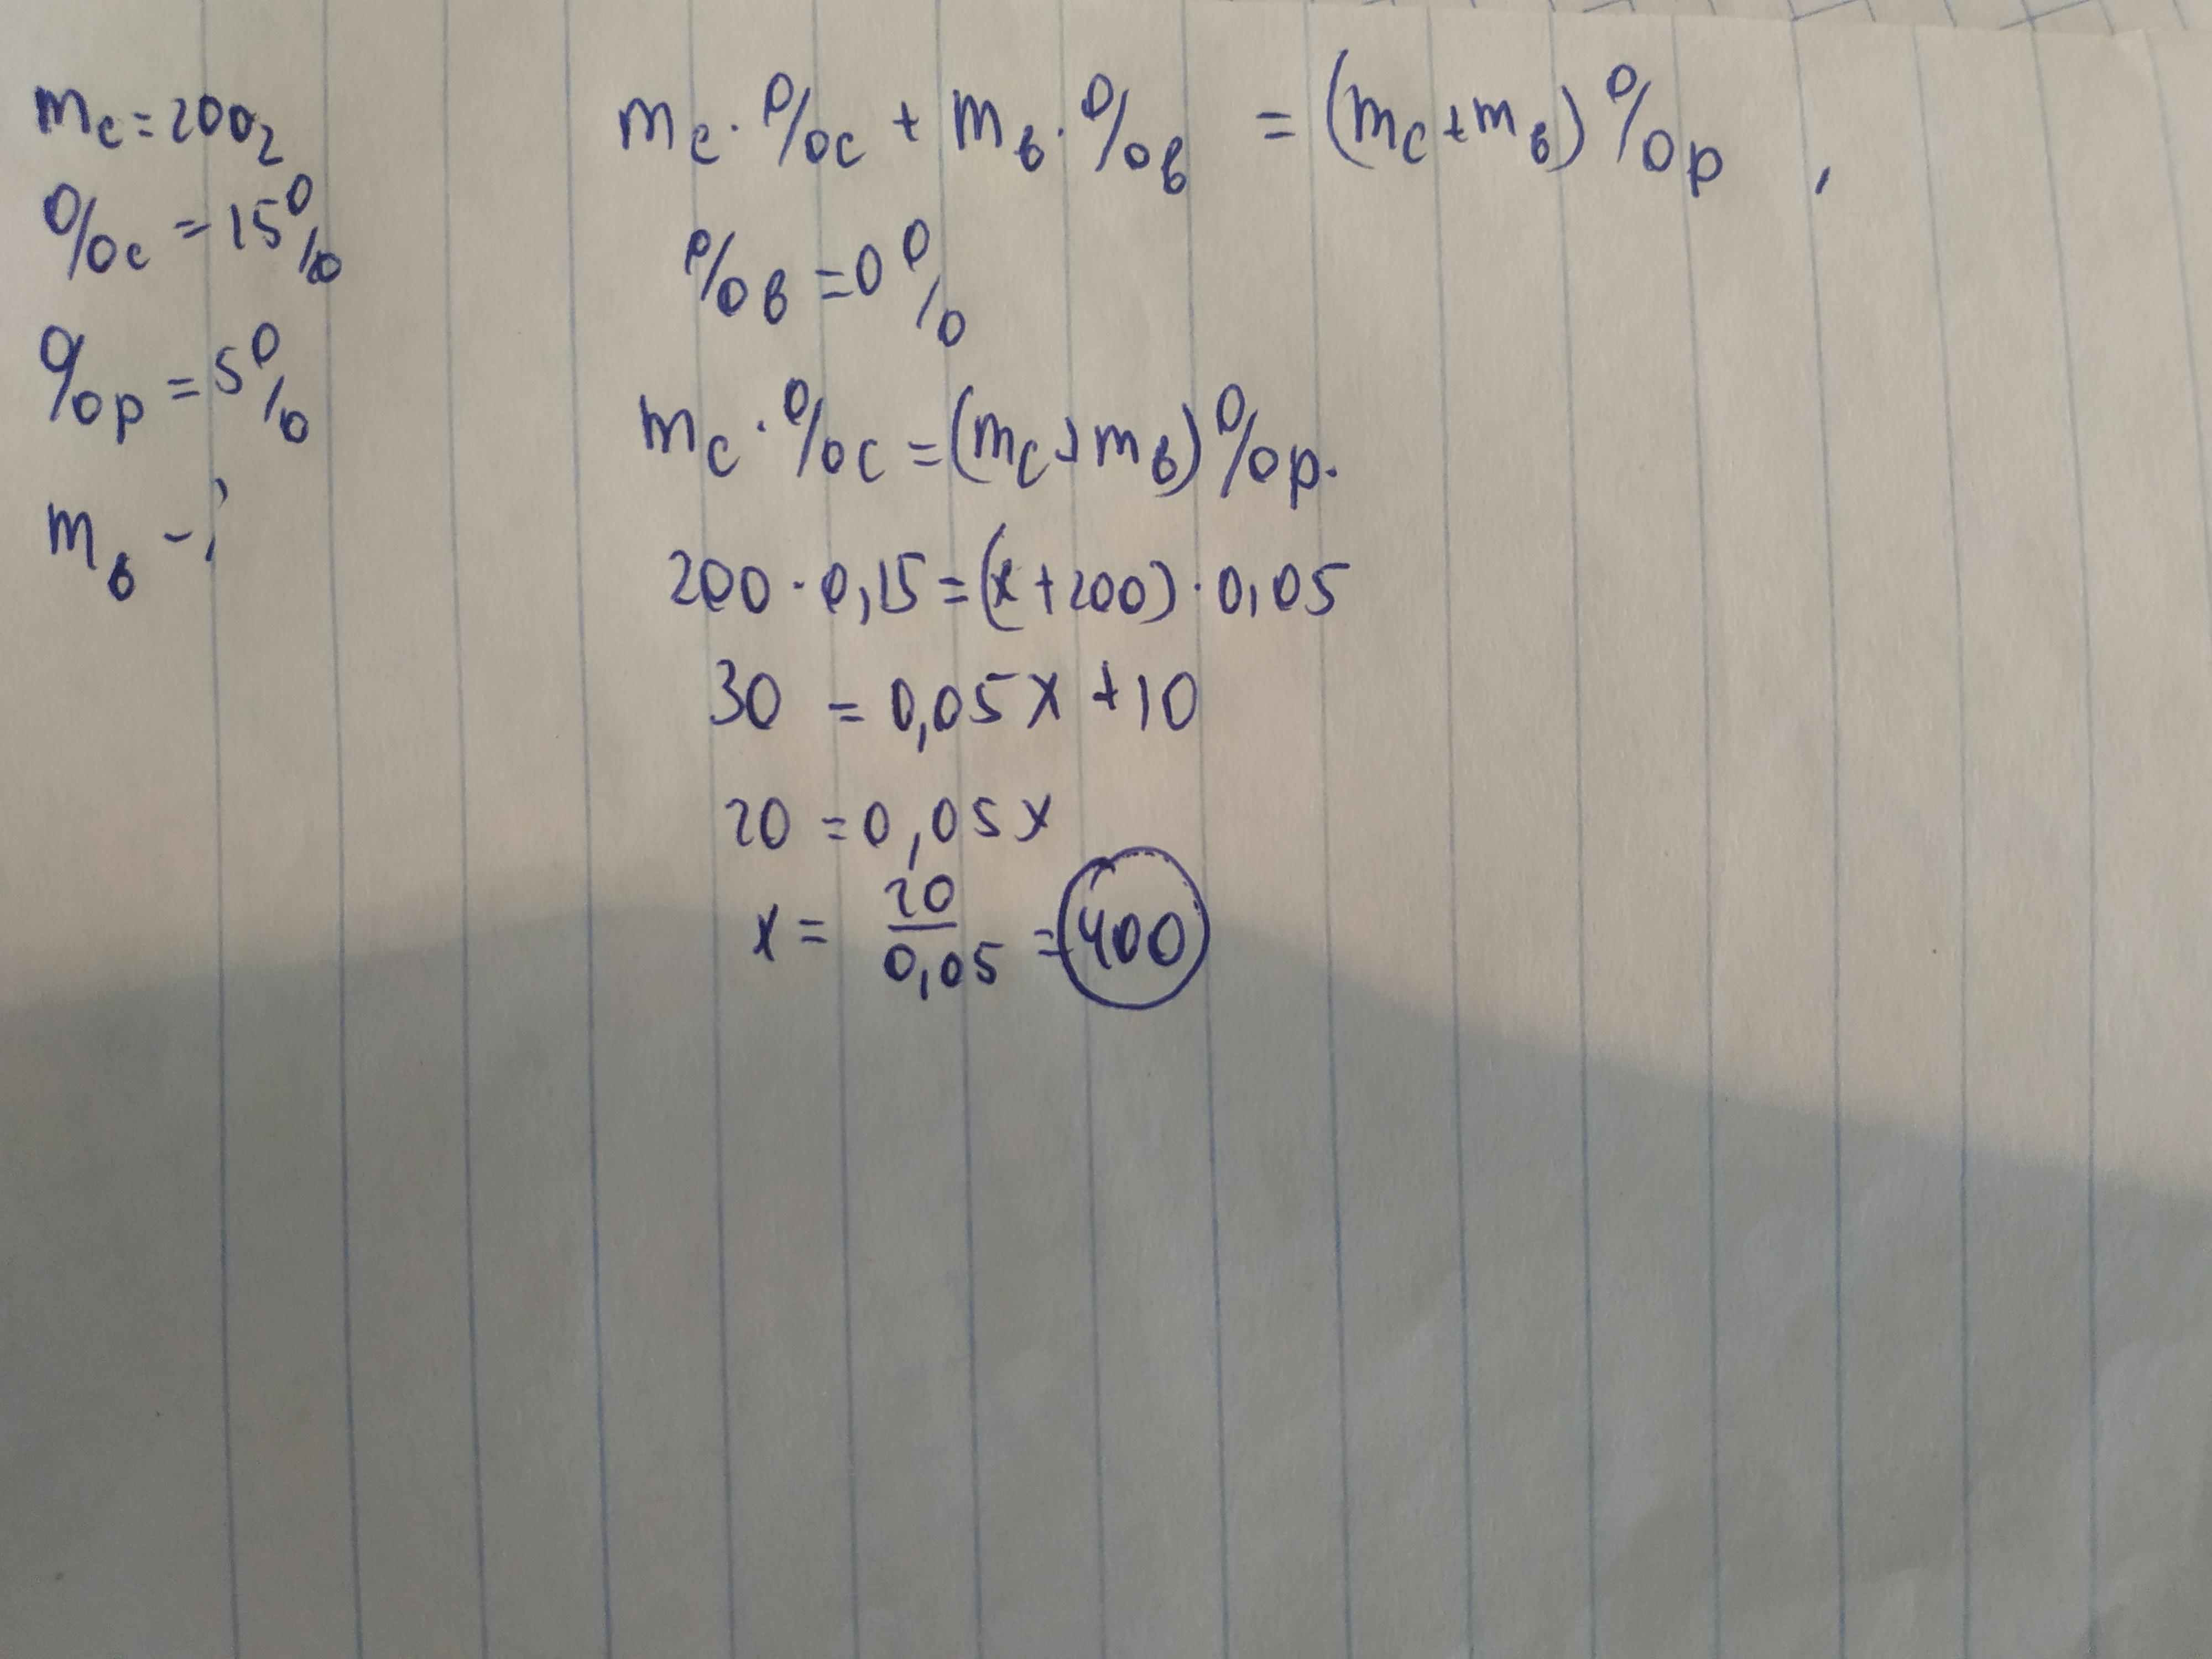 mс = 200г
%с = 15%
%р = 5%
mв - ?
mс · %с + mв · %в = (mс + mв) %р ,
%в = 0%
mс · %с = (mс + mв) %р.
200 · 0,15 = (x + 200) · 0,05
30 = 0,05x + 10
20 = 0,05x
x = 20/0,05 = 400